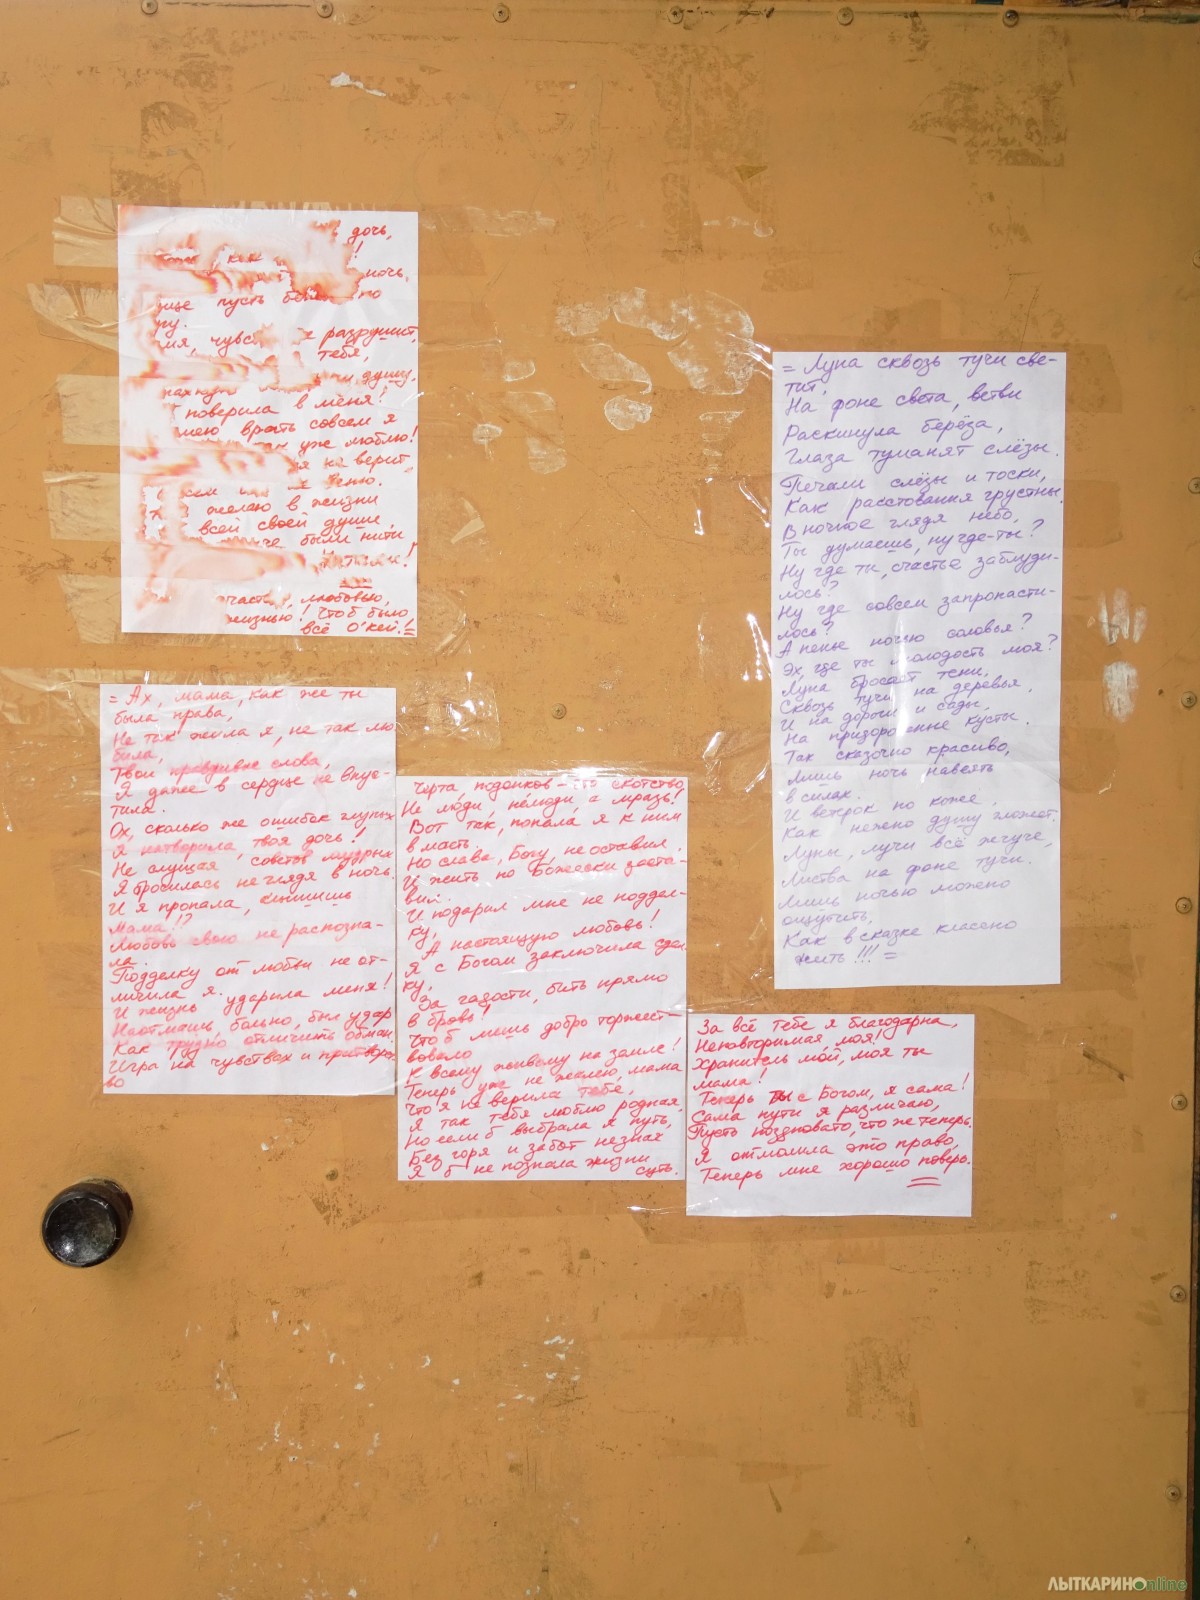 дочь,
как !
ночь,
пусть
разрушит,
тебя,
душу,
поверила в меня!
врать совсем я
уже люблю!
не верит,
желаю в жизни
всей своей души,
были нити
!
любовью,
! Чтоб было
всё О'кей!=
= Ах, мама, как же ты
была права,
Не так жила я, не так лю
била,
Твои правдивые слова,
Я даже в сердце не впус-
тила.
Ох, сколько же ошибок глупых
Я натворила, твоя дочь!
Не слушая, советов мудрых
Я бросилась не глядя в ночь.
И я пропала, слышишь
мама!?
Любовь свою не распозна-
ла.
Подделку от любви не от-
личила я.
И жизнь ударила меня!
Наотмашь, больно, был удар
Как трудно отличить обман
Игра на чувствах и притворс
во
Черта, подонков - это скотство,
Не люди, нелюди, а мразь!
Вот так, попала я к ним
в масть.
Но слава, Богу, не оставил,
И жить по Божески заста-
вил.
И подарил мне не поддел-
ку,
А настоящую любовь!
Я с Богом заключила сдел
ку,
За гадости, бить прямо
в бровь!
Чтоб лишь добро торжест-
вовало
К всему живому на земле!
Теперь уже не жалею, мама
Что я не верила тебе,
Я так тебя люблю родная,
Но если б выбрала я путь,
Без горя и забот незная
Я б не познала жизни
суть.
За всё тебе я благодарна,
Неповторимая, моя!
Хранитель мой, моя ты
мама!
Теперь ты с Богом, я сама!
Сама пути я различаю,
Пусть поздновато, что же теперь.
Я отмолила это право,
Теперь мне хорошо поверь.
= Луна сквозь тучи све-
тит,
На фоне света, ветви
Раскинула берёза,
Глаза туманят слёзы.
Печали слёзы и тоски,
Как расстования грустны.
В ночное глядя небо,
Ты думаешь, ну где-ты?
Ну где ты, счастье заблуди-
лось?
Ну где совсем запропасти-
лось?
А пенье ночью соловья?
Эх, где ты молодость моя?
Луна бросает тени,
Сквозь тучи на деревья,
И на дороги и сады,
На придорожные кусты.
Так сказочно красиво,
Лишь ночь навеять
в силах.
И ветрок по коже,
Как нежно душу гложет.
Луны, лучи всё жгуче,
Листва на фоне тучи.
Лишь ночью можно
ощутить,
Как в сказке классно
жить!!! =
ЛЫТКАРИНОonline